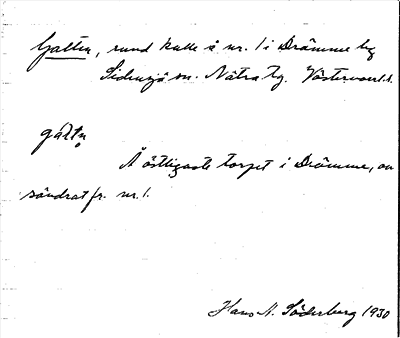 Galten, rund kulle å nr. 1 i Drömme by
Sidensjö sn. Nätra tg. Västernorrl. l.
gàltn̥
Å östligaste torpet i Drömme, av
söndrat fr. nr. 1.
Hans N. Söderberg 1930